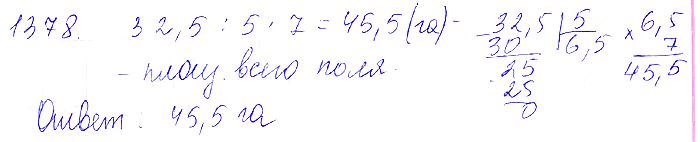 1378. 32,5 : 5 · 7 = 45,5 (га) -
- площ. всего поля.
Ответ: 45,5 га
32,5 | 5
30 6,5
25
25
0
× 6,5
7
45,5